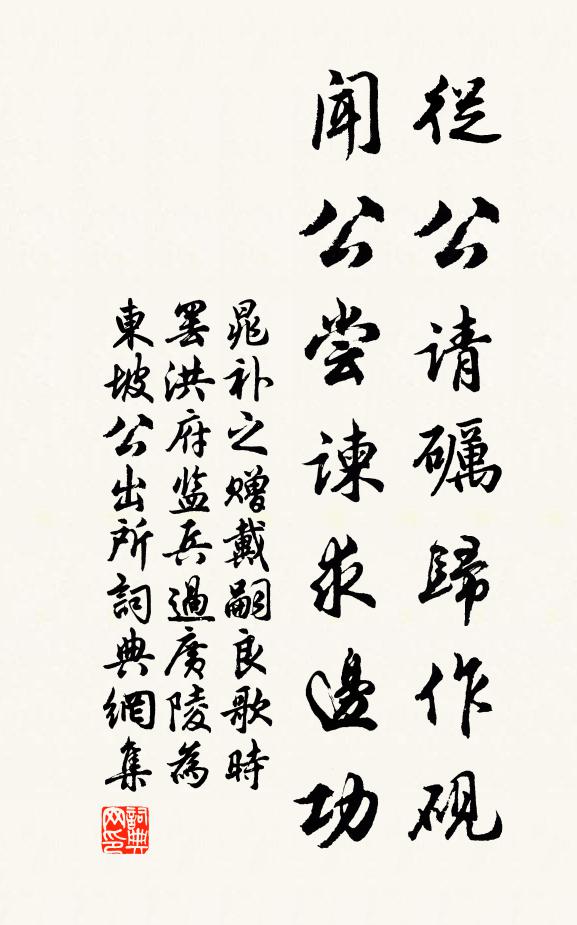 從公请礪歸作硯
聞公尝諫求邊功
晁补之赠戴嗣良歌時
罢洪府监兵過廣陵為
東坡公出所詞典網集
詞典
网印